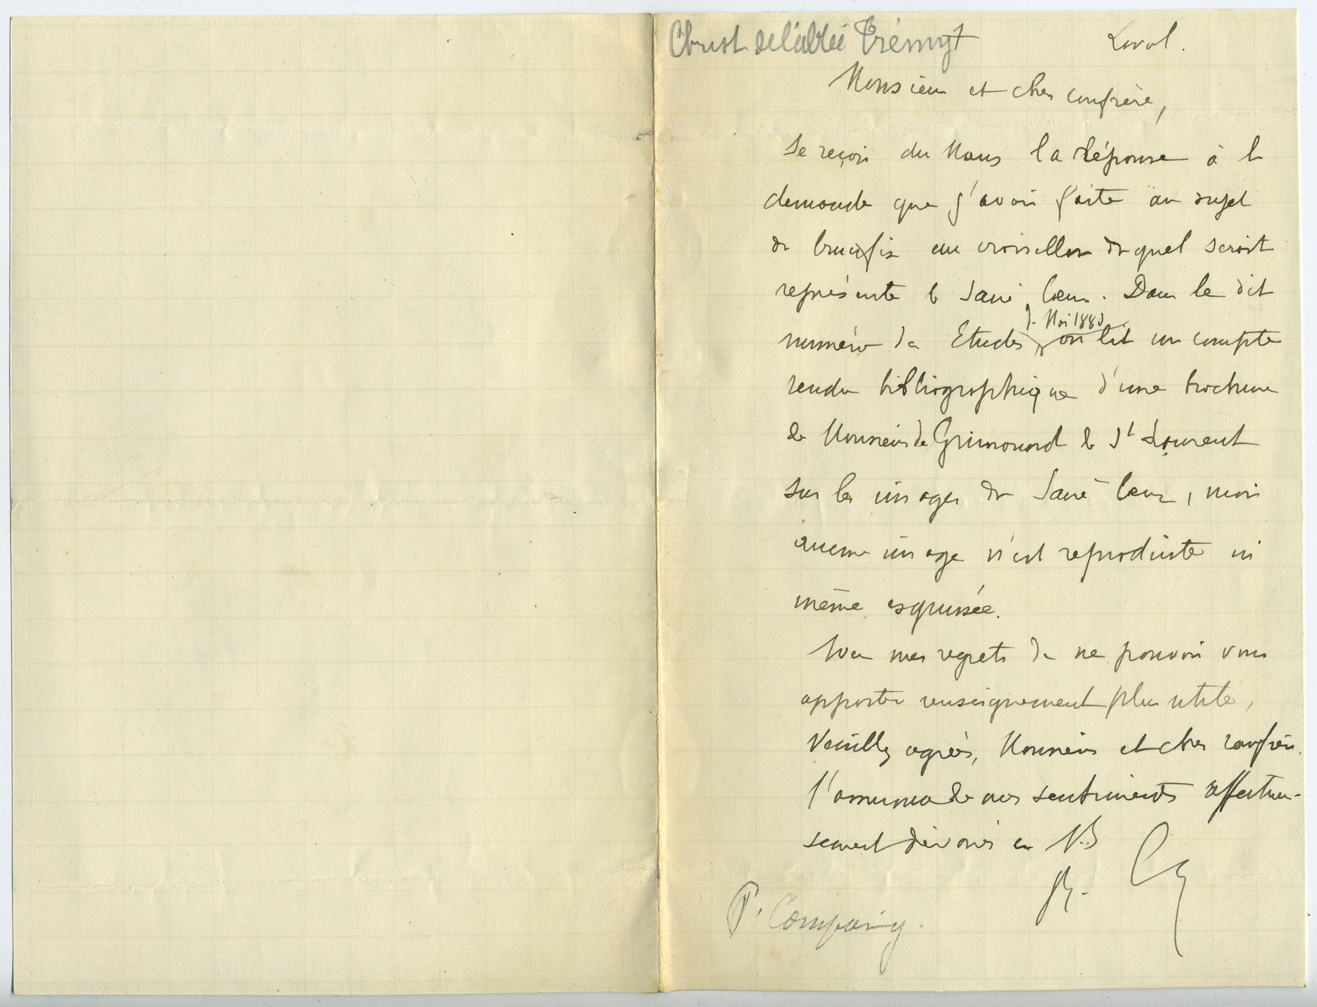 Christ de l'abbé Trémyt
Laval.
Monsieur et cher confrère,
Je reçois du Mans la Réponse à la
demande que j'avais faite au sujet
du Crucifix au croisillon duquel serait
représenté le Sacré Cœur. Dans le dit
numéro des Etudes, de Mai 1880, on lit un compte
rendu bibliographique d'une brochure
de Monsieur de Grimouard de St Laurent
sur les images du Sacré-Cœur, mais
aucune image n'est reproduite ni
même esquissée.
Avec mes regrets de ne pouvoir vous
apporter renseignement plus utile,
Veuillez agréer, Monsieur et cher confrère,
l'assurance de mes sentiments affectueu-
sement dévoués en N.S
P. Compaing.